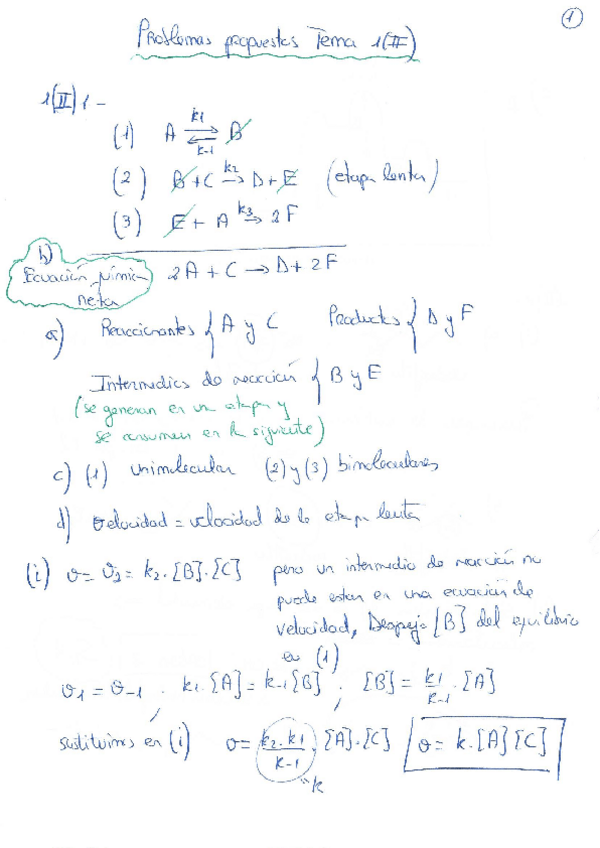 1
Problemas propuestos Tema 1(II)
1(II) 1-
(1) A ⇄ B k1 k-1
(2) B + C →k2 D + E (etapa lenta)
(3) E + A →k3 2F
b) Ecuación química neta
2A + C → D + 2F
a) Reaccionantes { A y C Productos { D y F
Intermedios de reacción { B y E
(se generan en un etapa y
se consumen en la siguiente)
c) (1) unimolecular (2) y (3) bimoleculares
d) velocidad = velocidad de la etapa lenta
(i) v = v2 = k2·[B]·[C] pero un intermedio de reacción no
puede estar en una ecuación de
velocidad, Despejo [B] del equilibrio
en (1)
v1 = v-1 ; k1·[A] = k-1[B] ; [B] = k1/k-1·[A]
sustituimos en (i) v = k2·k1/k-1·[A]·[C] v = k·[A][C]
"k